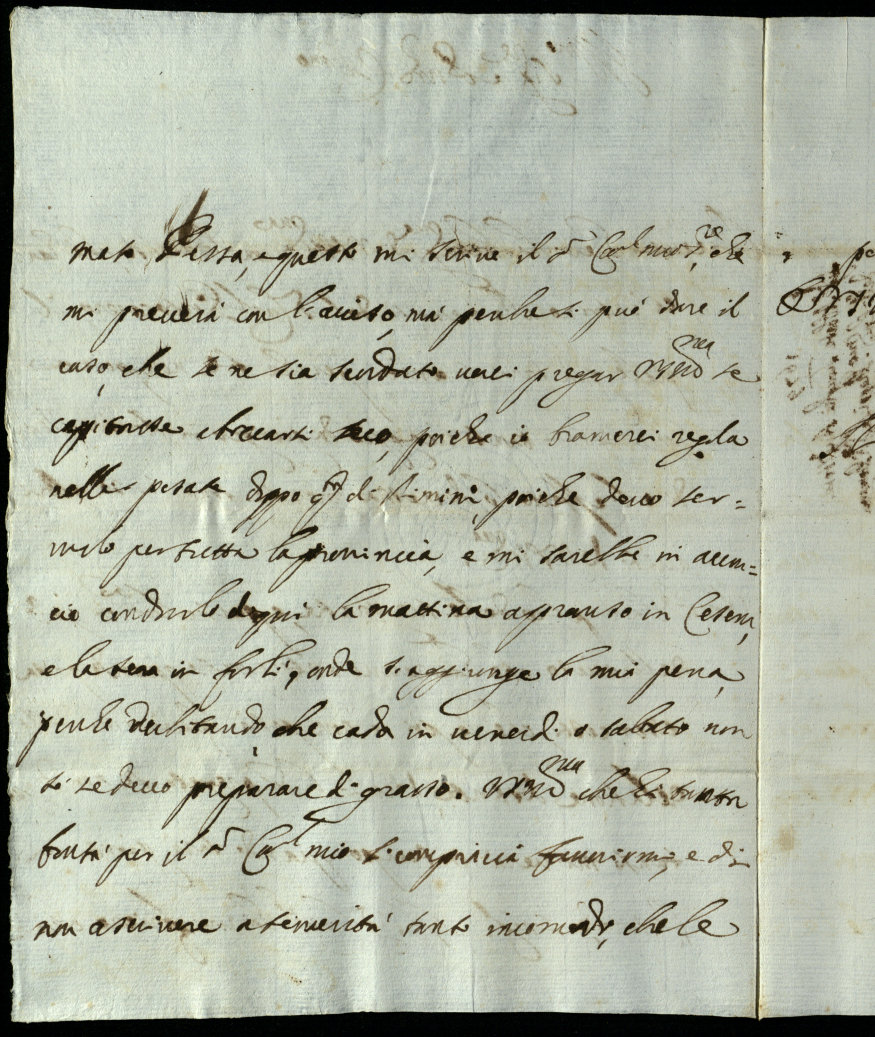 mato Pessa, e questo mi scrive il Sr Carl mio Sre, che
mi preverrà con l'aviso, ma perche si può dare il
caso, che se ne sia scordato, verei pregar VS Illma se
capitasse abocarsi seco, poiche io bramerei regola
nelle posate doppo di Rimini, poiche devo ser=
virlo per tutta la provincia, e mi sarebbe in accon=
cio condurlo di qui la mattina a pranso in Cesena,
e la sera in forlì, onde s'aggiunge la mia pena,
perche dubitando che cada in venerdi o sabbato non
sò se devo preparare di grasso. VS Illma che hà tanta
bontà per il Sr Carl mio si compiccia favorirmi, e di
non ascrivere a temerità tanto incomodo, che le